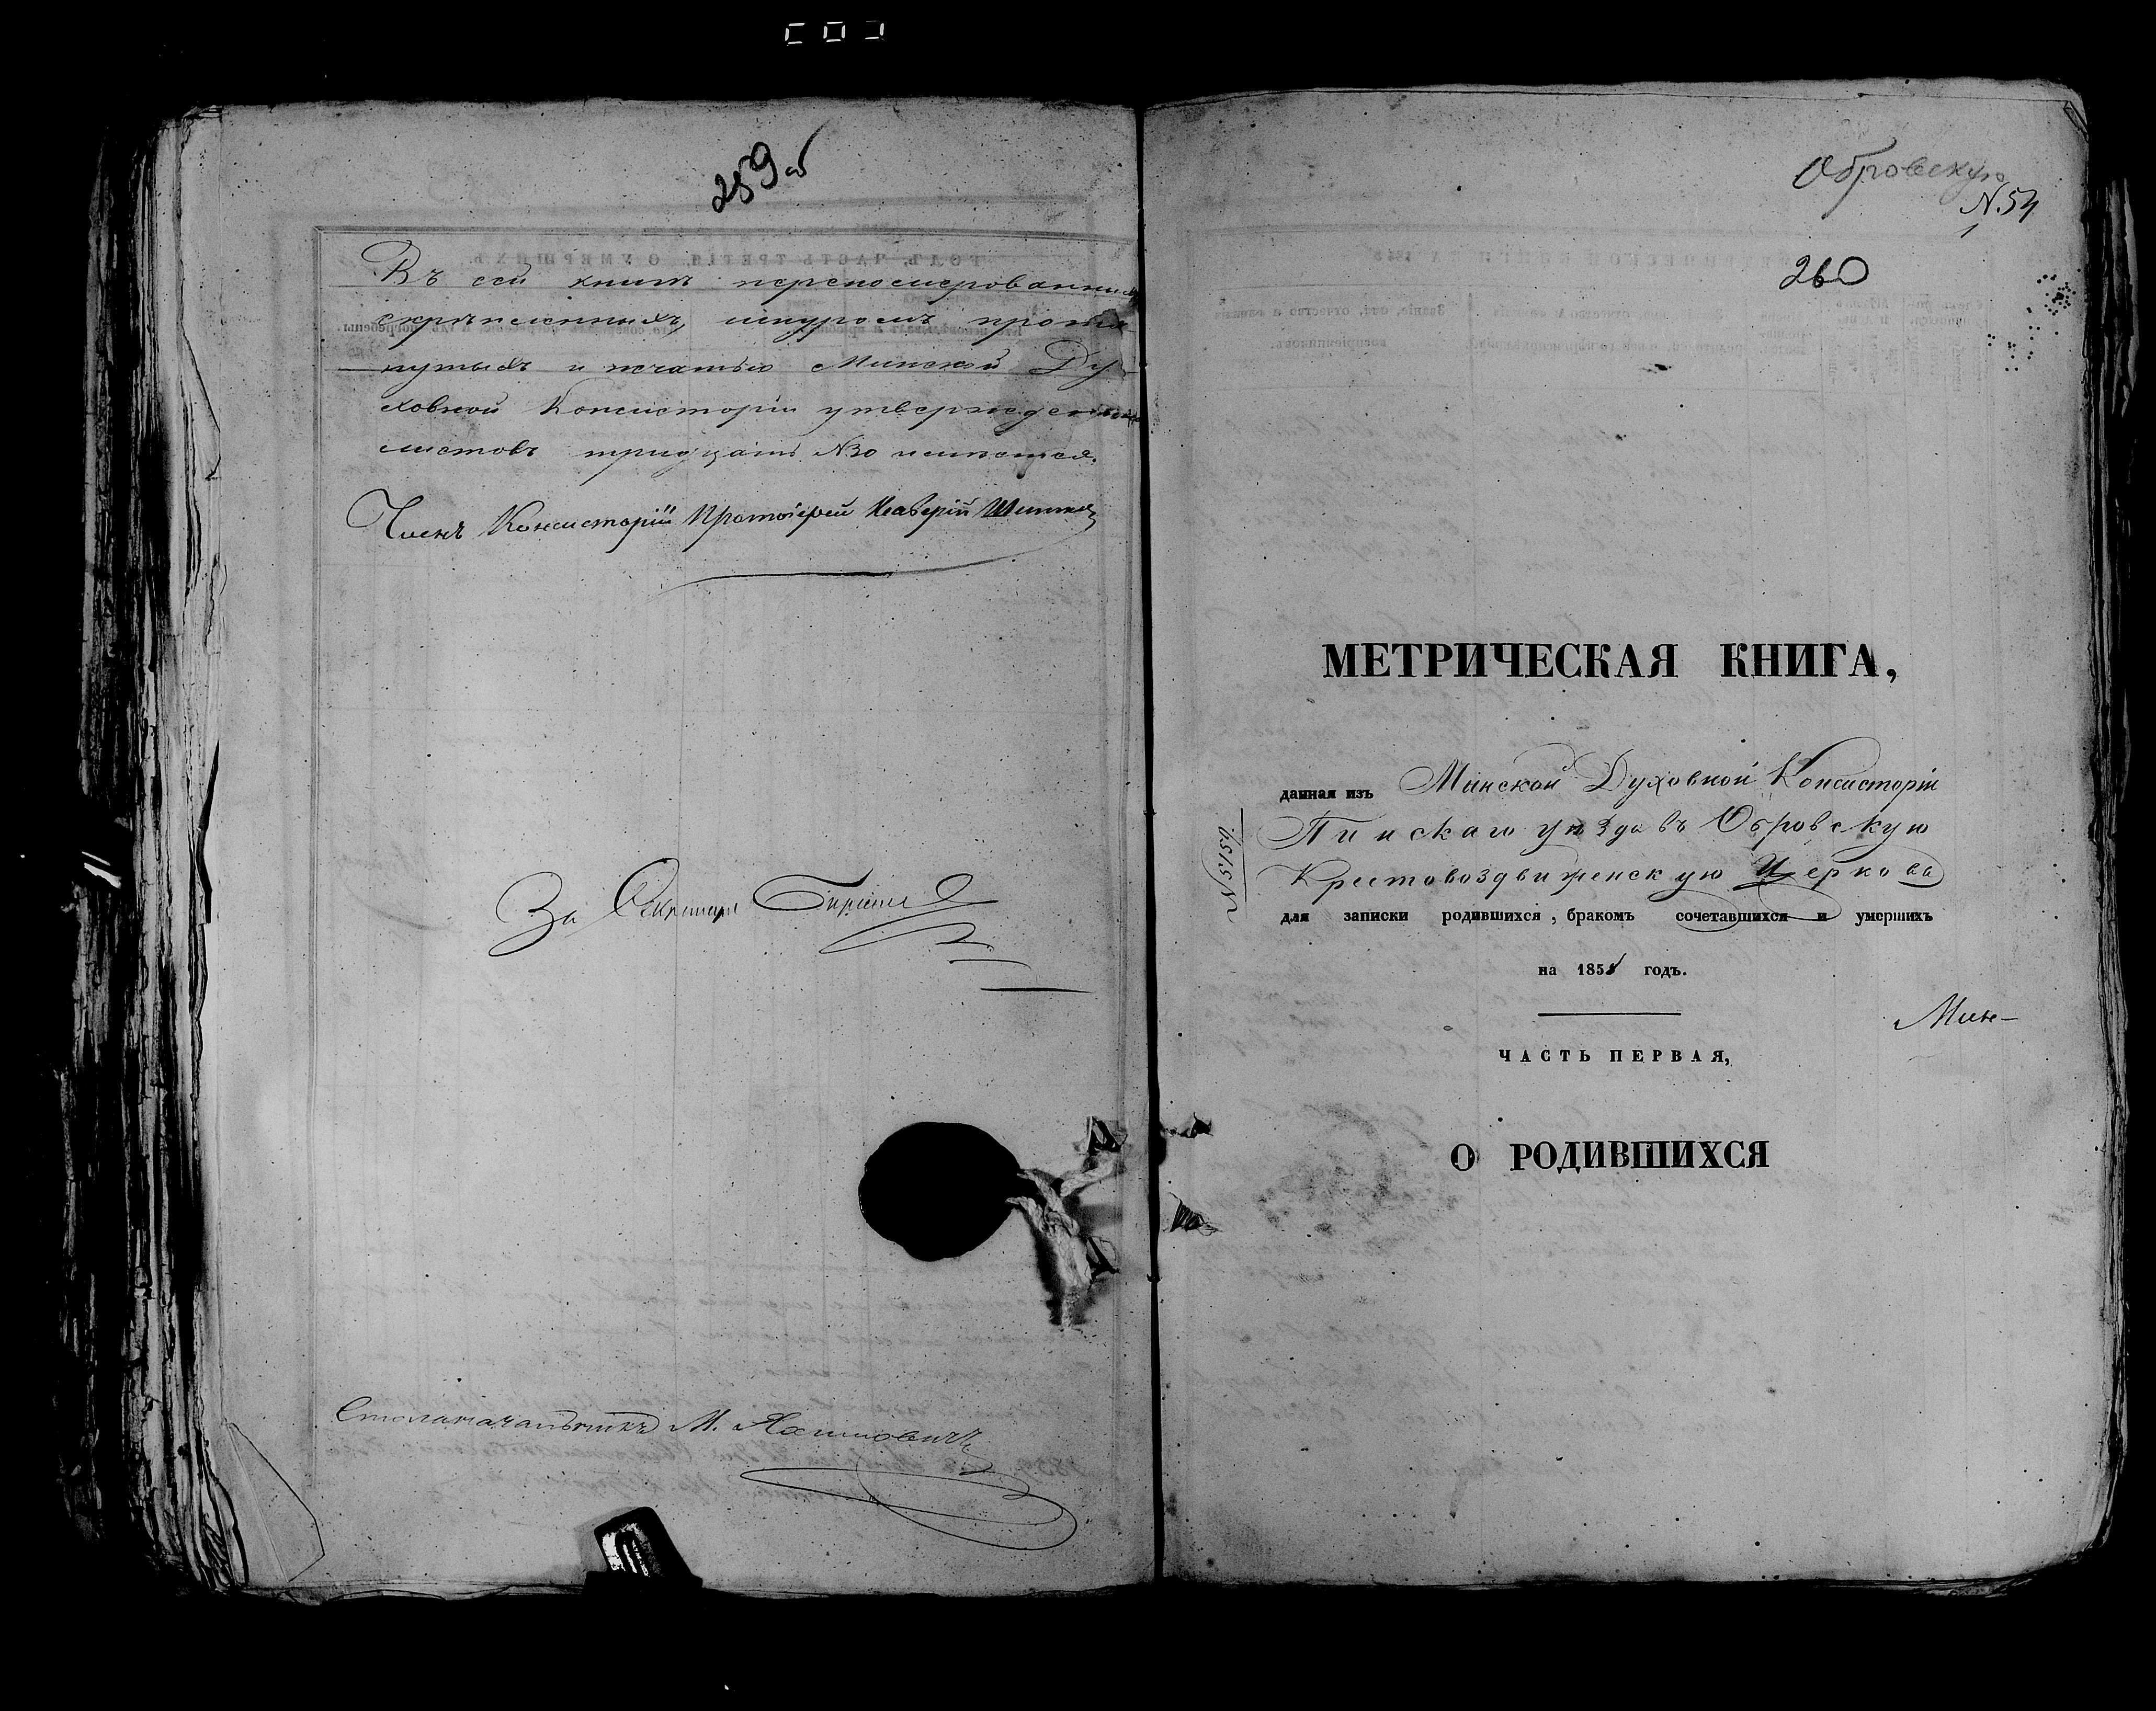 259об
Въ сей книгѣ перенумерованныхъ
скрѣпленныхъ, шнуромъ протя-
нутыхъ и печатью Минской Ду-
ховной Консисторіи утвержденныхъ
листовъ тридцать №30 имѣется.
Членъ Консисторіи Протоіерей
За Секретаря
Столоначальникъ М.
Обровскую
N.54
260
МЕТРИЧЕСКАЯ КНИГА,
данная изъ Минской Духовной Консисторіи
Пинскаго уѣзда въ Обровскую
Крестовоздвиженскую Церковь
N5159.
для записки родившихся, бракомъ сочетавшихся и умершихъ
на 185 годъ.
Мин-
ЧАСТЬ ПЕРВАЯ,
О РОДИВШИХСЯ